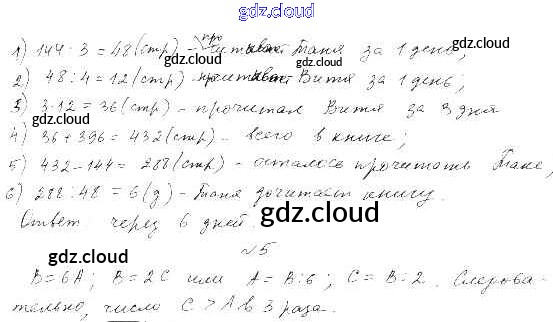 gdz.cloud
1) 144 · 3 = 48 (стр) - прочитывает Таня за 1 день;
2) 48 : 4 = 12 (стр) - прочитывает Витя за 1 день;
3) 3·12 = 36 (стр) - прочитал Витя за 3 дня
4) 36 + 396 = 432 (стр) - всего в книге;
5) 432 - 144 = 288 (стр) - осталось прочитать Тане,
6) 288 : 48 = 6 (д) - Таня дочитает книгу.
Ответ: через 6 дней.
gdz.cloud
№5
B = 6A; B = 2C или A = B:6; C = B:2. Следова-
тельно, число C > A в 3 раза.